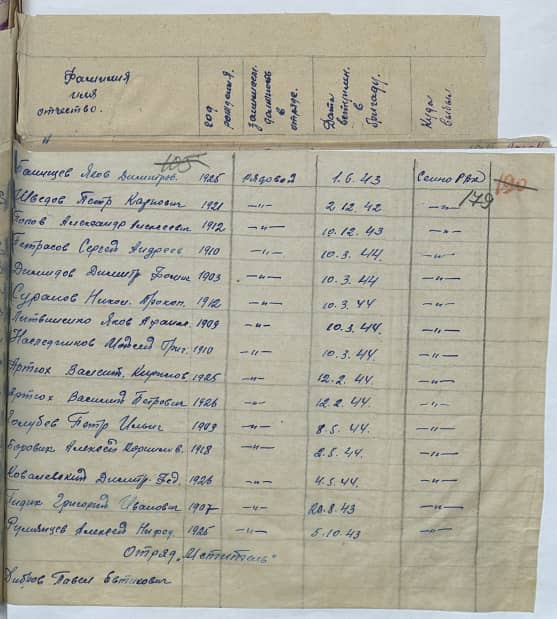 Фамилия имя отчество. год рождения. занимаем. должность в отряде. Дата вступлен. в бригаду. Куда выбыл.
105 190
179
Яков Дмитров. 1925 рядовой 1.6.43 Сенно РВК
Шведов Петр Карпович 1921 —"— 2.12.42 —"—
Попов Александр Алексеевич 1912 —"— 10.12.43 —"—
Петрасов Сергей Андреев 1910 —"— 10.3.44 —"—
Димидов Димитр 1903 —"— 10.3.44 —"—
Суранов Никон. Прокоп. 1912 —"— 10.3.44 —"—
Литвиненко Яков 1909 —"— 10.3.44 —"—
Наследников Моисей Григ. 1910 —"— 10.3.44 —"—
Артюх Валент. 1925 —"— 12.2.44. —"—
Артюх Василий Петрович 1926 —"— 12.2.44. —"—
Голубев Петр Ильич 1909 —"— 8.5.44. —"—
Боровик Алексей 1918 —"— 2.5.44. —"—
Ковалевский Димитр. Фед. 1926 —"— 4.5.44 —"—
Григорий Иванович 1907 —"— 20.8.43 —"—
Румянцев Алексей 1925 —"— 5.10.43 —"—
Отряд „Мститель"
Дибров Павел Евтихович